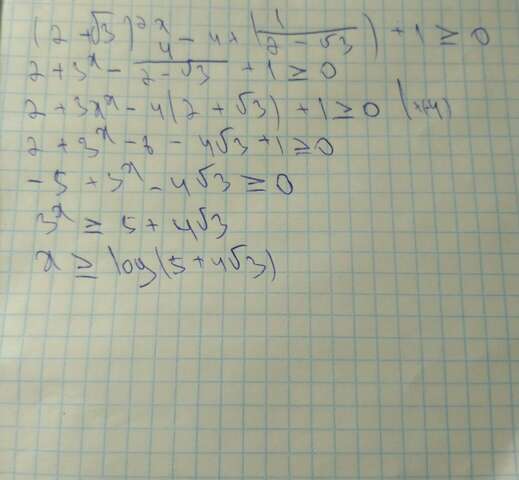 (2+√3)^2x - 4 * (1/(2-√3)) + 1 ≥ 0
2+3^x - 4/(2-√3) + 1 ≥ 0
2+3^x - 4(2+√3) + 1 ≥ 0
2+3^x - 8 - 4√3 + 1 ≥ 0
-5 + 3^x - 4√3 ≥ 0
3^x ≥ 5 + 4√3
x ≥ log(5+4√3)